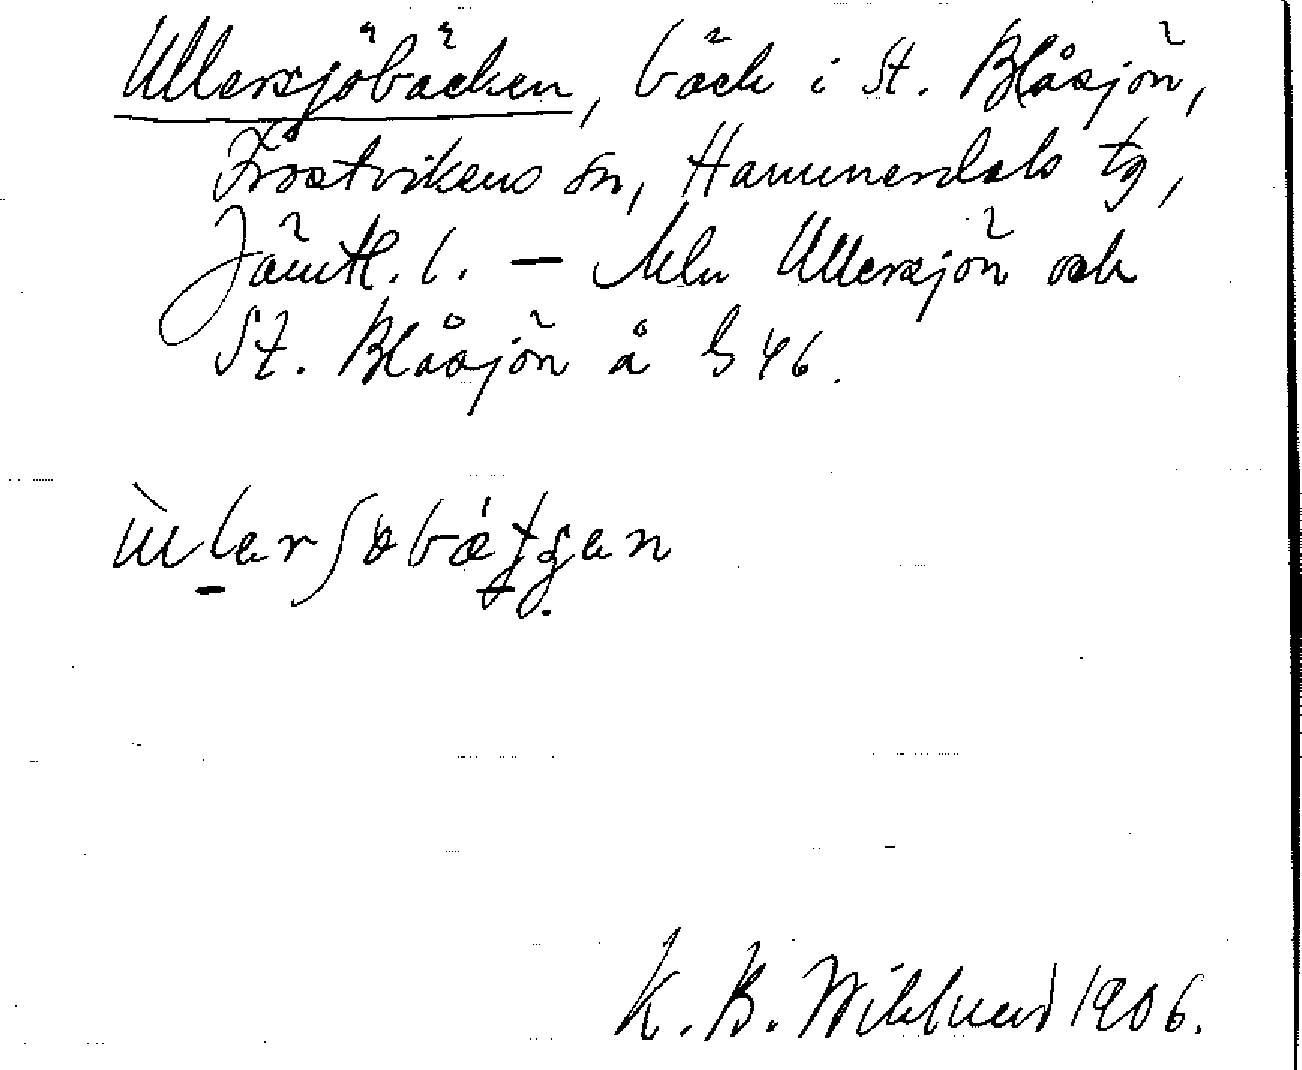 Ullersjöbäcken, bäck i St. Blåsjön,
Frostvikens sn, Hammerdals tg,
Jämtl. l. — Mln Ullersjön och
St. Blåsjön å G 46.
K. B. Wiklund 1906.